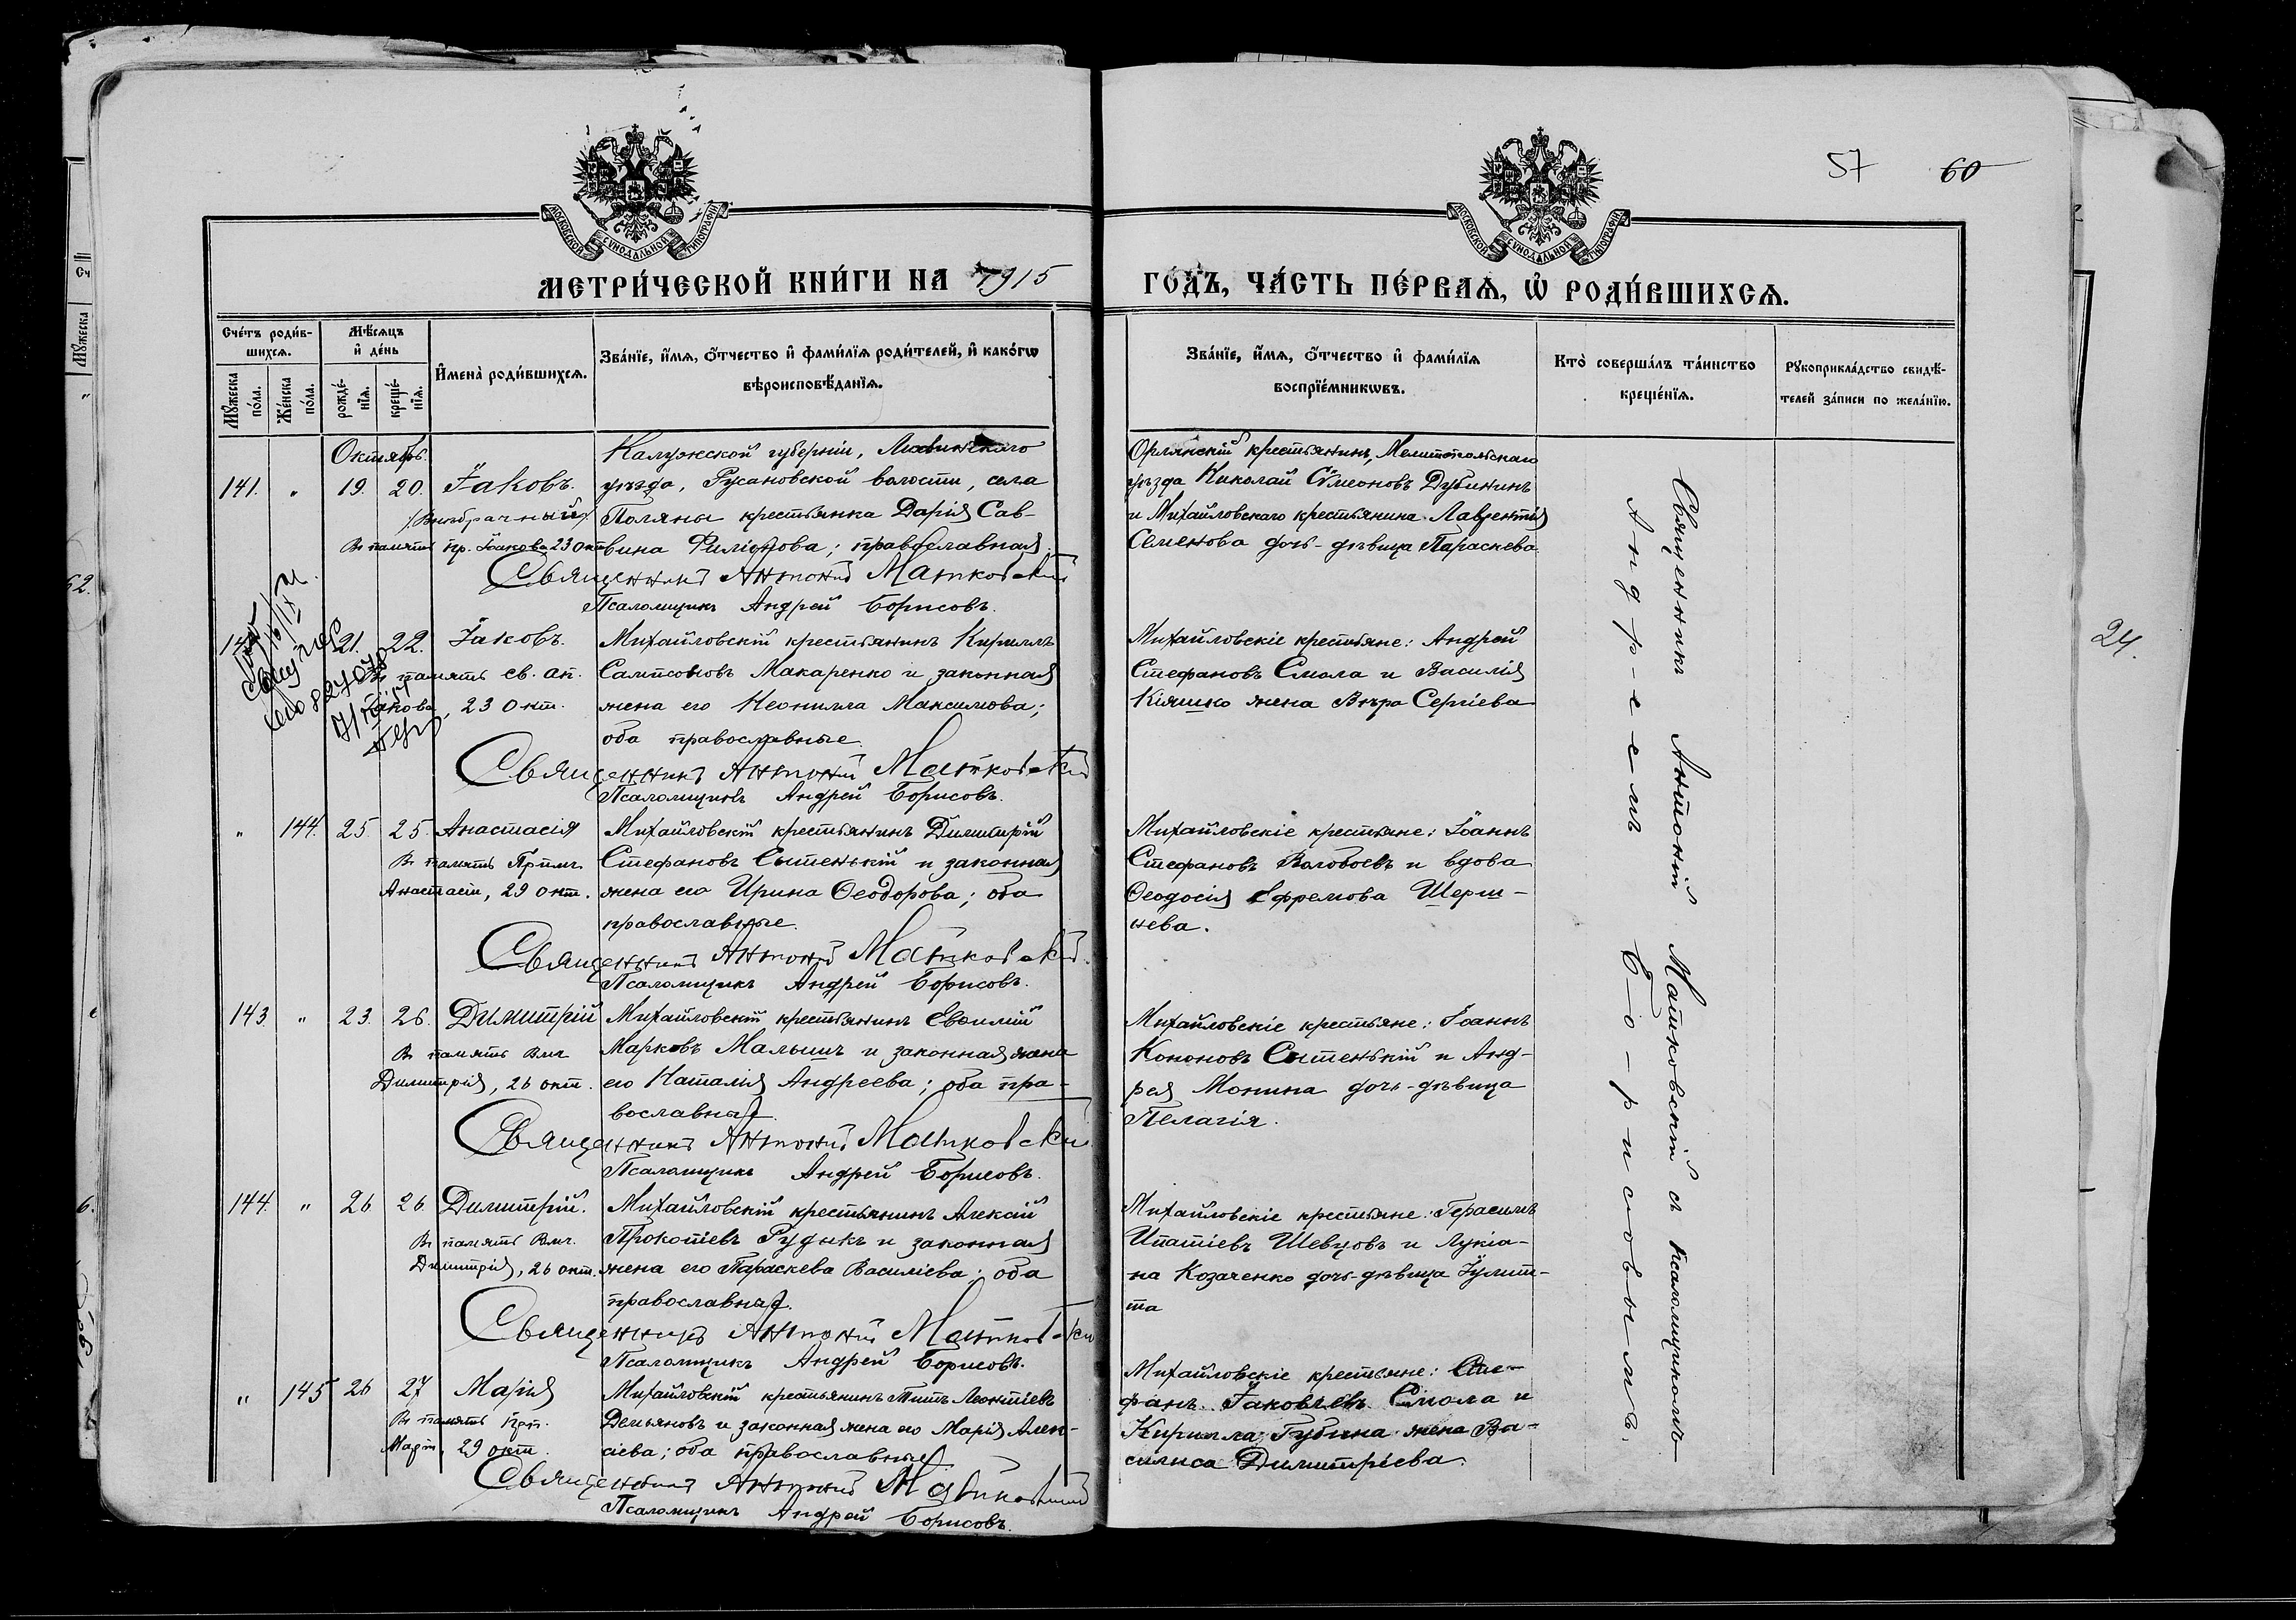 57 60
МОСКОВСКОЙ СѴНОДАЛЬНОЙ ТИПОГРАФІИ
МОСКОВСКОЙ СѴНОДАЛЬНОЙ ТИПОГРАФІИ
МЕТРИ́ЧЕСКОЙ КНИ́ГИ НА 1915
ГО́ДЪ, ЧА́СТЬ ПЕ́РВАѦ, Ѡ҆ РОДИ́ВШИХСѦ.
Сче́тъ роди́в-
шихсѧ.
Мꙋ́жеска по́ла.
Же́нска по́ла.
Мѣ́сѧцъ
и҆ де́нь
рожде́-
нїѧ.
креще́-
нїѧ.
И҆мена̀ роди́вшихсѧ.
Зва́нїе, и҆́мѧ, ѻ҆́тчество и҆ фами́лїѧ роди́телей, и҆ како́гѡ
вѣроисповѣ́данїѧ.
Зва́нїе, и҆́мѧ, ѻ҆́тчество и҆ фами́лїѧ
воспрїе́мникѡвъ.
Кто̀ соверша́лъ та́инство
креще́нїѧ.
Рꙋкоприкла́дство свидѣ́-
телей за́писи по жела́нїю.
Октябрь.
141. " 19. 20. Іаковъ.
/Внѣбрачный/
Въ память пр. Іакова 23 окт
Калужской губерніи,
уѣзда, Русановской волости, села
Поляны крестьянка Дарія Сав-
вина Филиппова; православная
Священникъ Антоній Матковскій
Псаломщикъ Андрей Борисовъ.
Орлянскій крестьянинъ, Мелитопольскаго
уѣзда Николай Сѷмеоновъ Дубининъ
и Михайловскаго крестьянина Лаврентія
Семенова дочь-дѣвица Параскева
21. 22. Іаковъ.
Въ память св. ап.
Іакова, 23 окт.
Михайловскій крестьянинъ Кириллъ
Сампсоновъ Макаренко и законная
жена его Неонилла Максимова;
оба православные.
Священникъ Антоній Матковскій
Псаломщикъ Андрей Борисовъ.
Михайловскіе крестьяне: Андрей
Стефановъ Смола и Василія
Кіяшко жена Вѣра Сергіева
" 144. 25. 25. Анастасія
Въ память Прпмч.
Анастасіи, 29 окт.
Михайловскій крестьянинъ Димитрій
Стефановъ Сытенькій и законная
жена его Ирина Ѳеодорова; оба
православные.
Священникъ Антоній Матковскій.
Псаломщикъ Андрей Борисовъ.
Михайловскіе крестьяне: Іоаннъ
Стефановъ Воловоевъ и вдова
Ѳеодосія Ефремова Шерш-
нева.
143. " 23. 26. Димитрій
Въ память Вмч.
Димитрія, 26 окт.
Михайловскій крестьянинъ Евѳимій
Марковъ Малышъ и законная жена
его Наталія Андреева; оба пра-
вославные.
Священникъ Антоній Матковскій
Псаломщикъ Андрей Борисовъ.
Михайловскіе крестьяне: Іоаннъ
Кононовъ Сытенькій и Анд-
рея Монина дочь-дѣвица
Пелагія.
144. " 26 26 Димитрій.
Въ память Вмч.
Димитрія, 26 окт.
Михайловскій крестьянинъ Алексій
Прокопіевъ Рудыкъ и законная
жена его Параскева Василіева; оба
православные.
Священникъ Антоній Матковскій
Псаломщикъ Андрей Борисовъ.
Михайловскіе крестьяне: Герасимъ
Ипатіевъ Шевцовъ и Лукіа-
на Козаченко дочь-дѣвица Іулит-
та
" 145 26 27 Марія
Въ память прп.
Маріи, 29 окт.
Михайловскій крестьянинъ Титъ Леонтіевъ
Демьяновъ и законная жена его Марія Алек-
сіева; оба православные
Священникъ Антоній Матковскій
Псаломщикъ Андрей Борисовъ.
Михайловскіе крестьяне: Сте-
фанъ Іаковлевъ Смола и
Кирилла Губина жена Ва-
силиса Димитріева.
Священникъ Антоній Матковскій съ псаломщикомъ
Андреемъ Борисовымъ.
24.